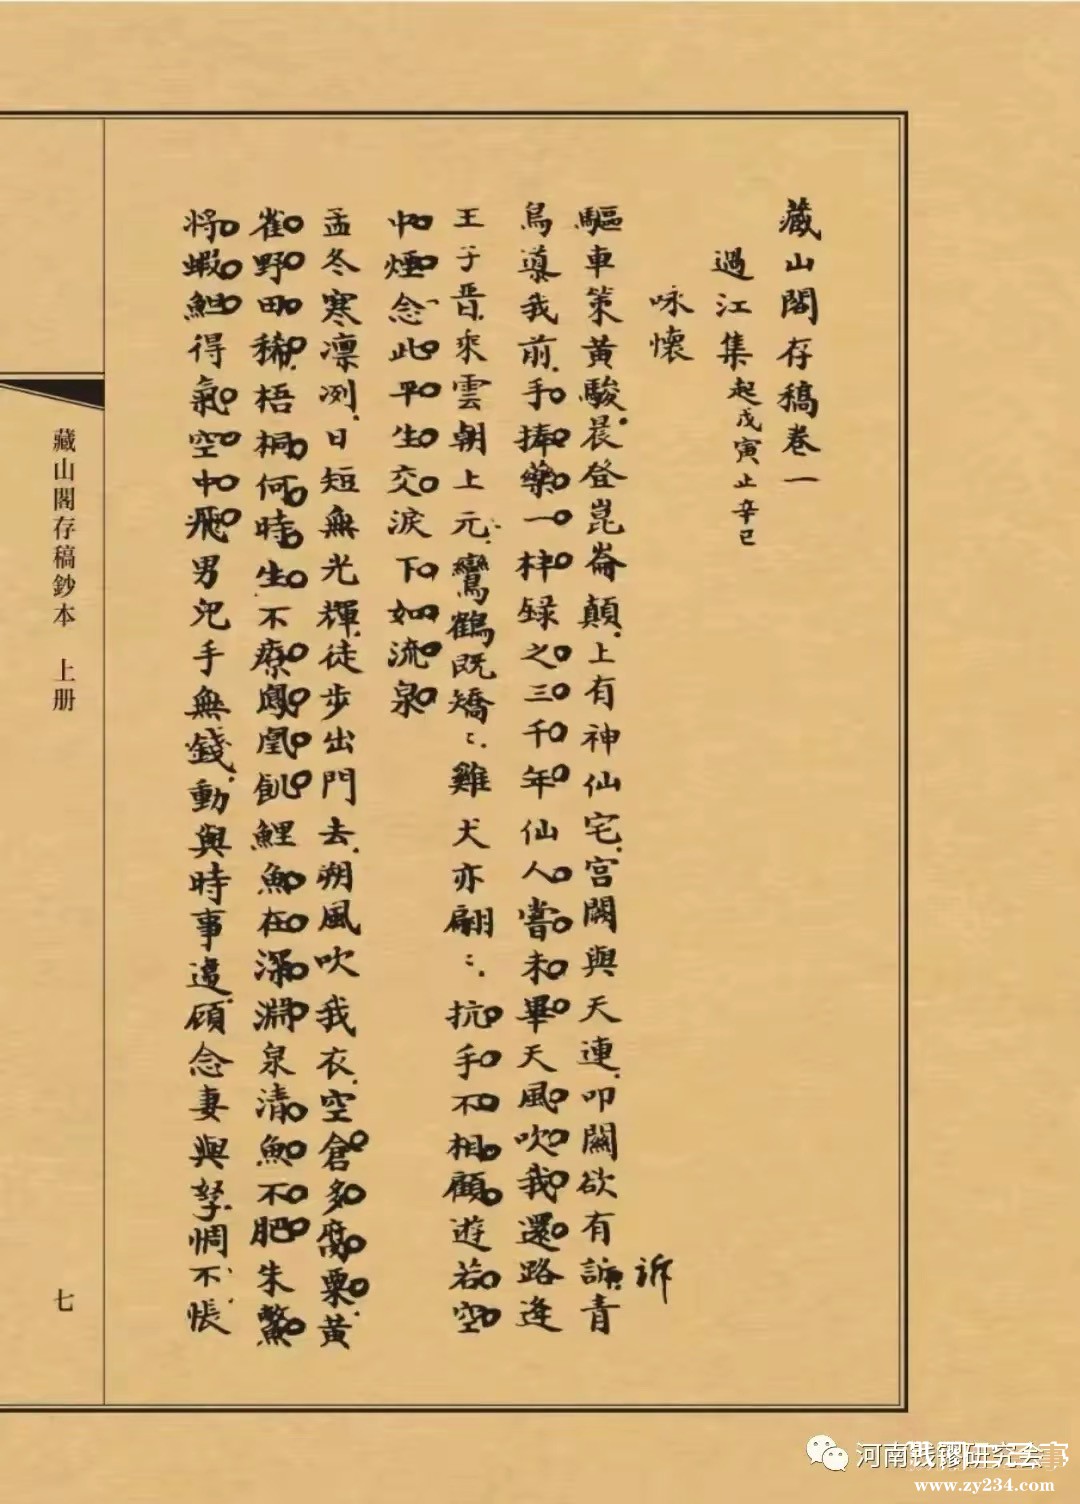 藏山閣存稿卷一
過江集起戊寅止辛巳
咏懷
驅車策黃駿晨登崑崙顛上有神仙宅宮闕與天連叩闕欲有訴青
訴
鳥導我前手捧藥一杯錄之三千年仙人嘗未畢天風吹我還路逢
王子晋乘雲朝上元鸞鶴既矯〻雞犬亦翩〻抗手不相顧遊若空
中煙念此平生交淚下如流泉
孟冬寒凛冽日短無光輝徒步出門去朔風吹我衣空倉多腐粟黃
雀野田稀梧桐何時生不療鳳凰飢鯉魚在深淵泉清魚不肥朱鱉
將蝦得氣空中飛男児手無錢動與時事違顧念妻與孥惆不悵
藏山閣存稿鈔本 上册
七
河南钱镠研究会
www.zy234.com